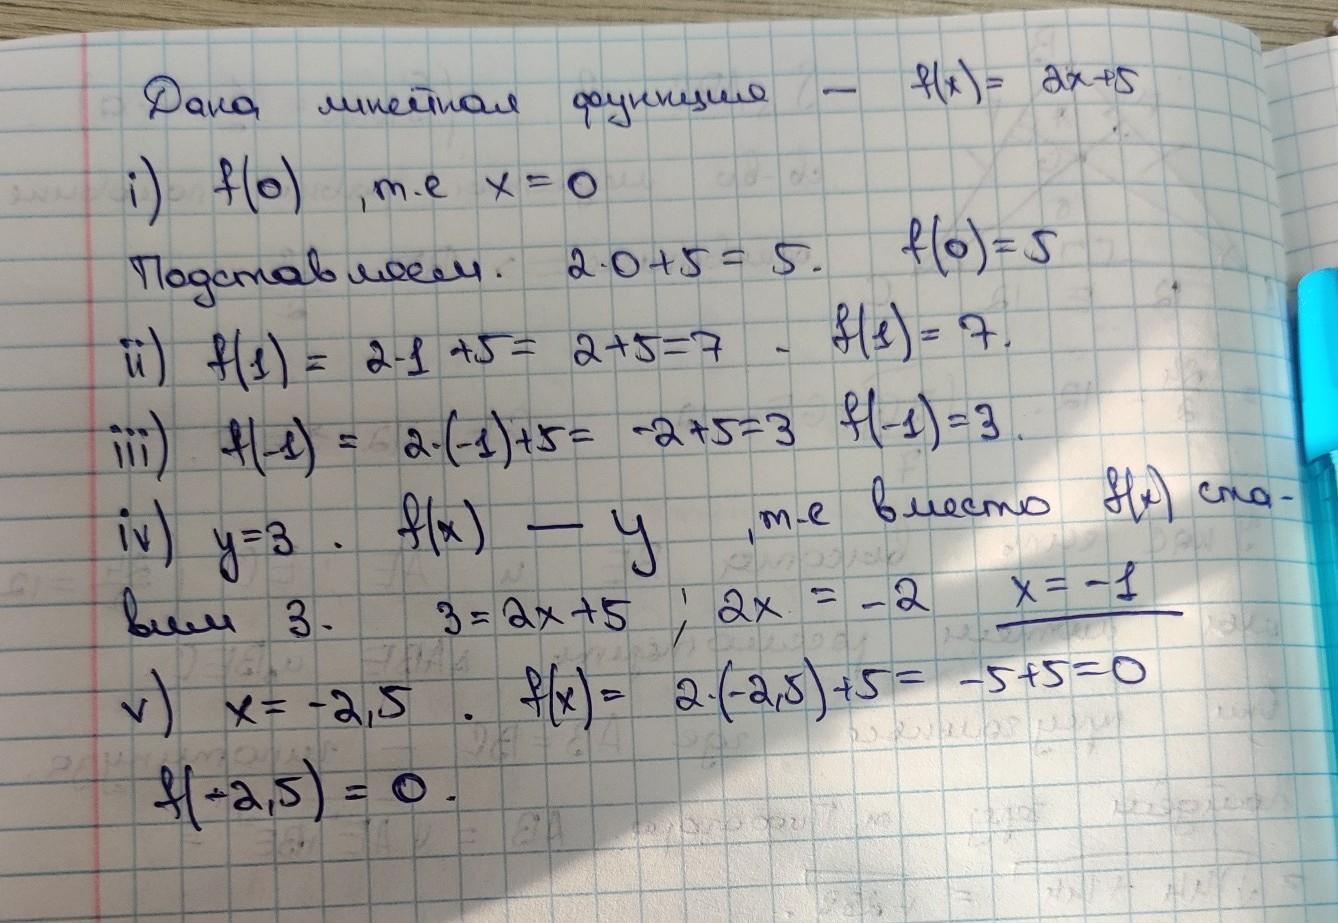 Дана линейная функция — f(x) = 2x+5
i) f(0) , т.е x = 0
Подставляем. 2·0+5 = 5. f(0) = 5
ii) f(1) = 2·1 +5 = 2+5=7 . f(1) = 7.
iii) f(-1) = 2·(-1)+5 = -2+5=3 f(-1)=3.
iv) y=3 . f(x) — y , т.е вместо f(x) ста-
вим 3. 3=2x+5 ; 2x = -2 x = -1
v) x = -2,5 . f(x) = 2·(-2,5)+5 = -5+5=0
f(-2,5) = 0.